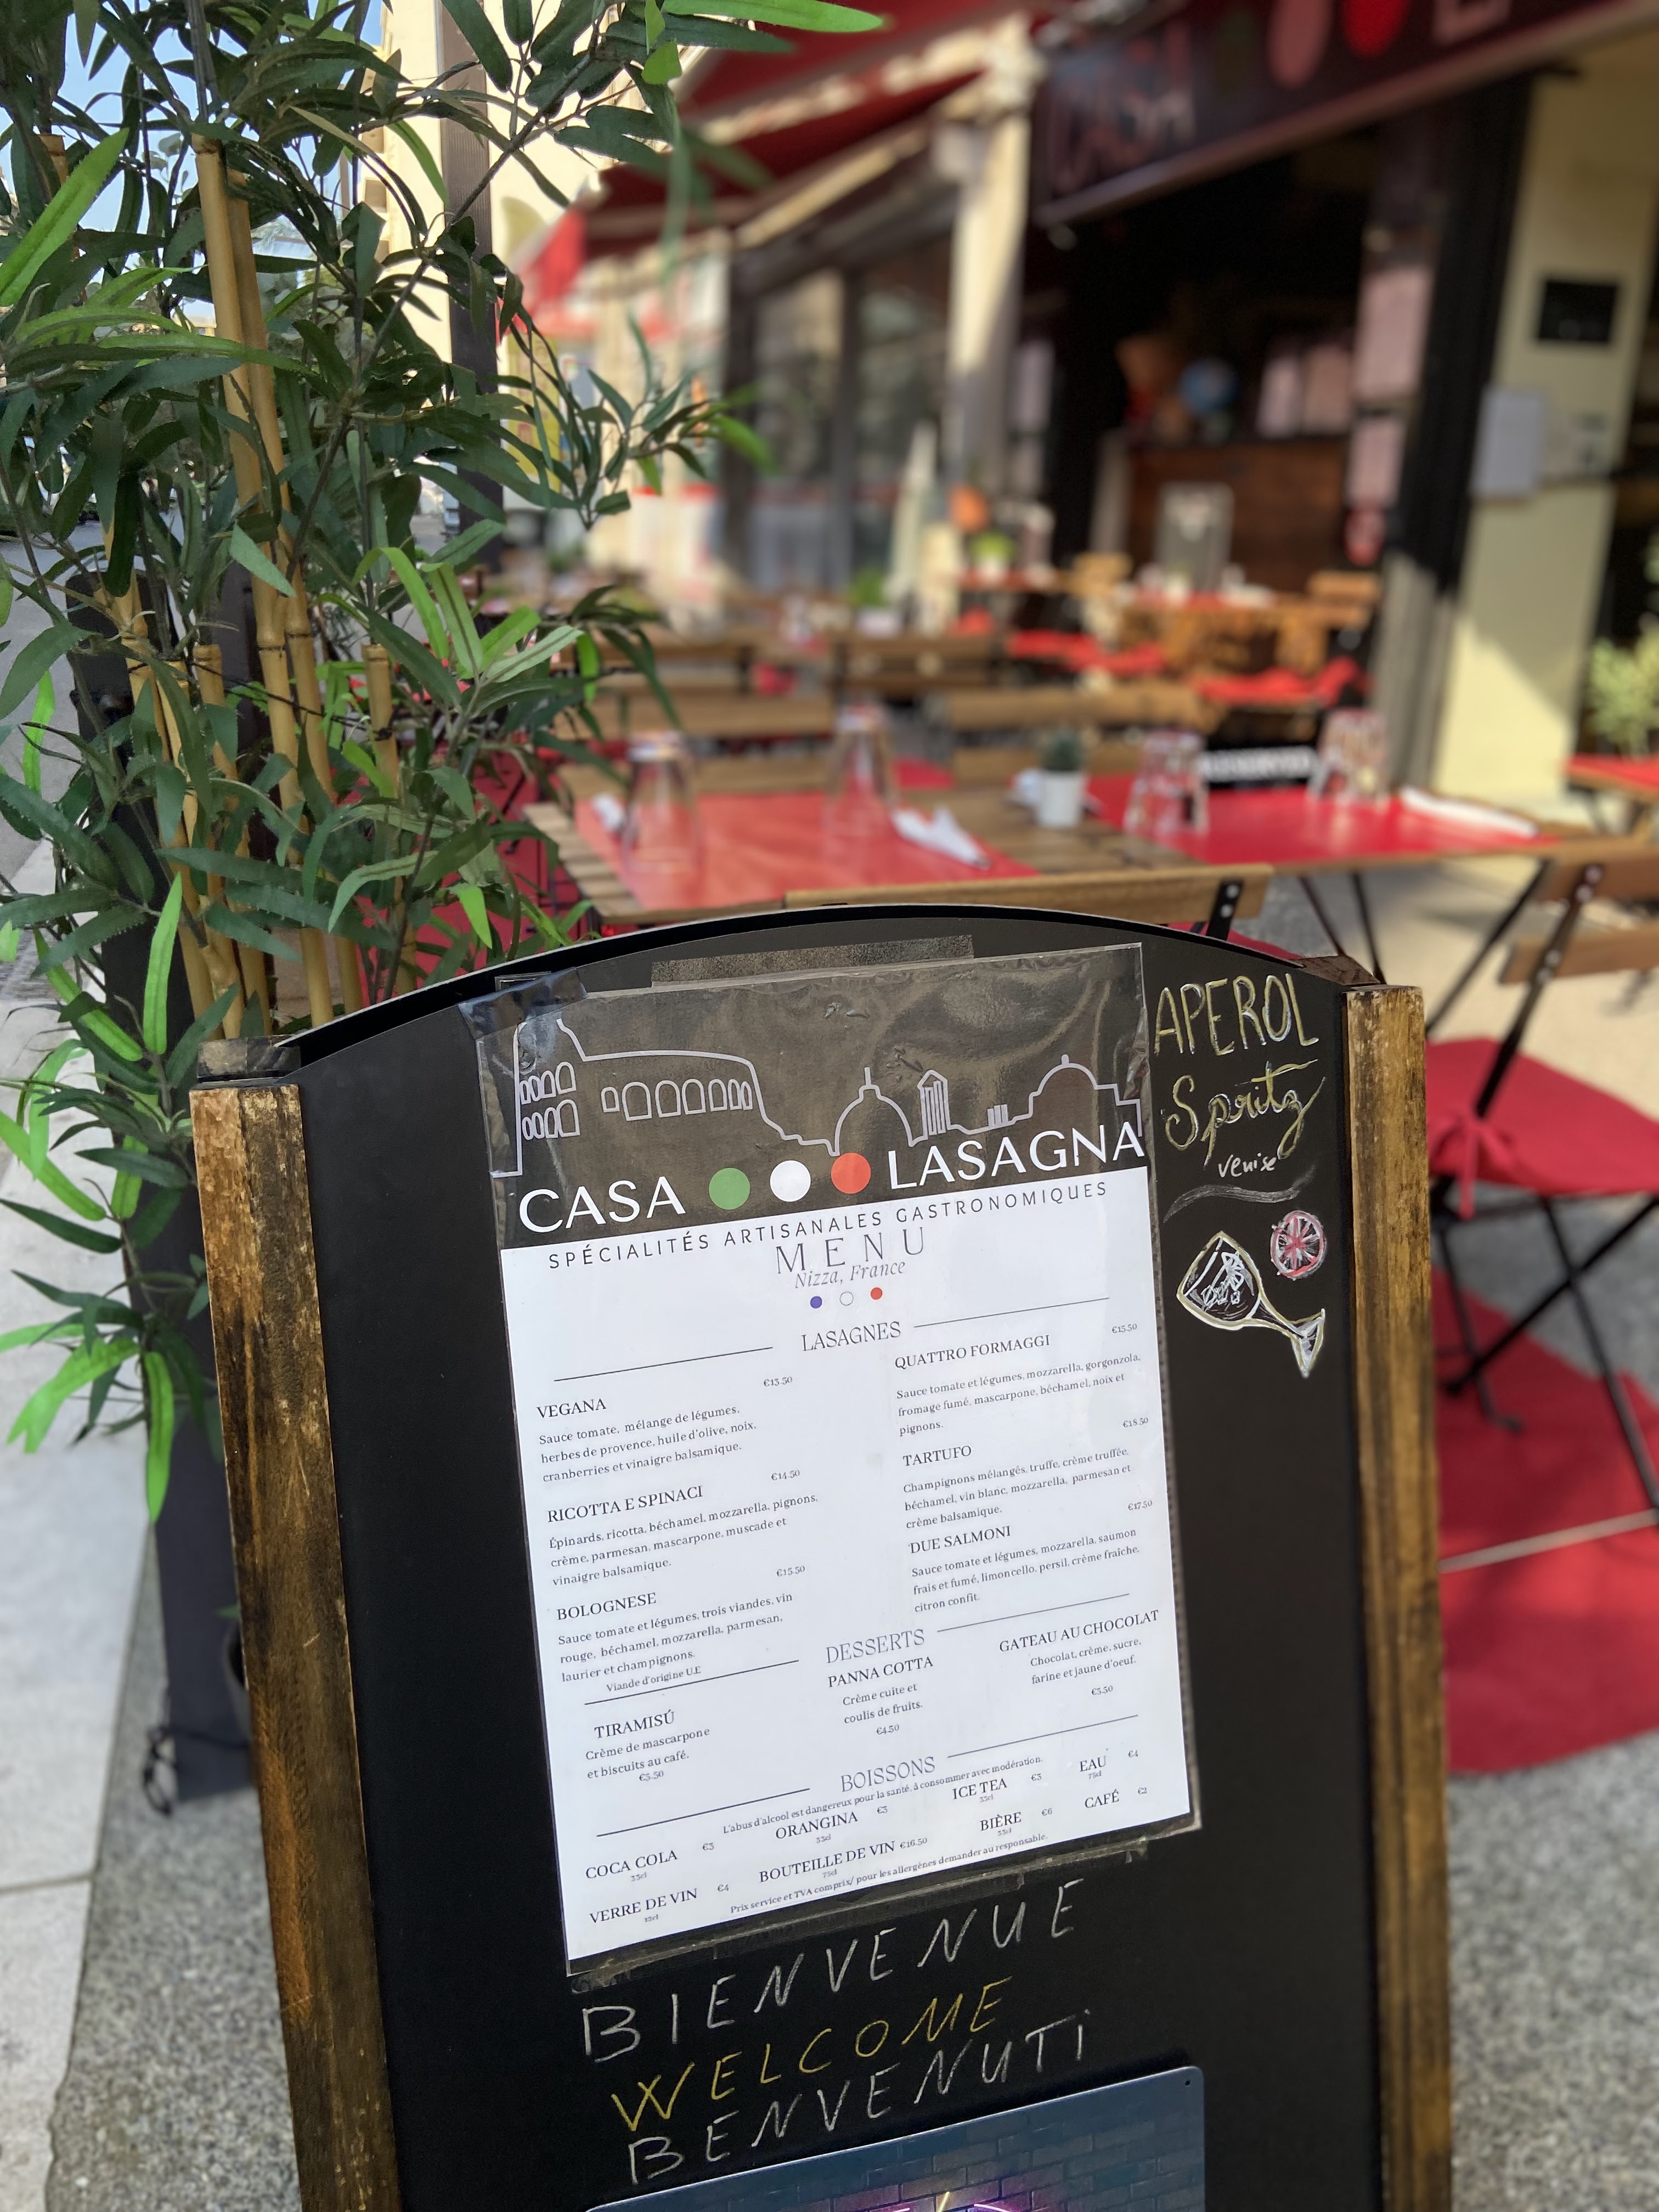 APEROL
Spritz
venise
CASA LASAGNA
SPÉCIALITÉS ARTISANALES GASTRONOMIQUES
MENU
Nizza, France
LASAGNES
€13.50
VEGANA
Sauce tomate, mélange de légumes,
herbes de provence, huile d'olive, noix,
cranberries et vinaigre balsamique.
€14.50
RICOTTA E SPINACI
Épinards, ricotta, béchamel, mozzarella, pignons,
crème, parmesan, mascarpone, muscade et
vinaigre balsamique.
€15.50
BOLOGNESE
Sauce tomate et légumes, trois viandes, vin
rouge, béchamel, mozzarella, parmesan,
laurier et champignons.
Viande d'origine U.E
€15.50
QUATTRO FORMAGGI
Sauce tomate et légumes, mozzarella, gorgonzola,
fromage fumé, mascarpone, béchamel, noix et
pignons.
€18.50
TARTUFO
Champignons mélangés, truffe, crème truffée,
béchamel, vin blanc, mozzarella, parmesan et
crème balsamique.
€17.50
DUE SALMONI
Sauce tomate et légumes, mozzarella, saumon
frais et fumé, limoncello, persil, crème fraîche,
citron confit.
DESSERTS
TIRAMISÚ
Crème de mascarpone
et biscuits au café.
€5.50
PANNA COTTA
Crème cuite et
coulis de fruits.
€4.50
GATEAU AU CHOCOLAT
Chocolat, crème, sucre,
farine et jaune d'oeuf.
€5.50
BOISSONS
L'abus d'alcool est dangereux pour la santé, à consommer avec modération.
COCA COLA €3
33cl
ORANGINA €3
33cl
ICE TEA €3
33cl
EAU €4
75cl
VERRE DE VIN €4
BOUTEILLE DE VIN €16.50
75cl
BIÈRE €6
33cl
CAFÉ €2
Prix service et TVA compris/ pour les allergènes demander au responsable.
BIENVENUE
WELCOME
BENVENUTi